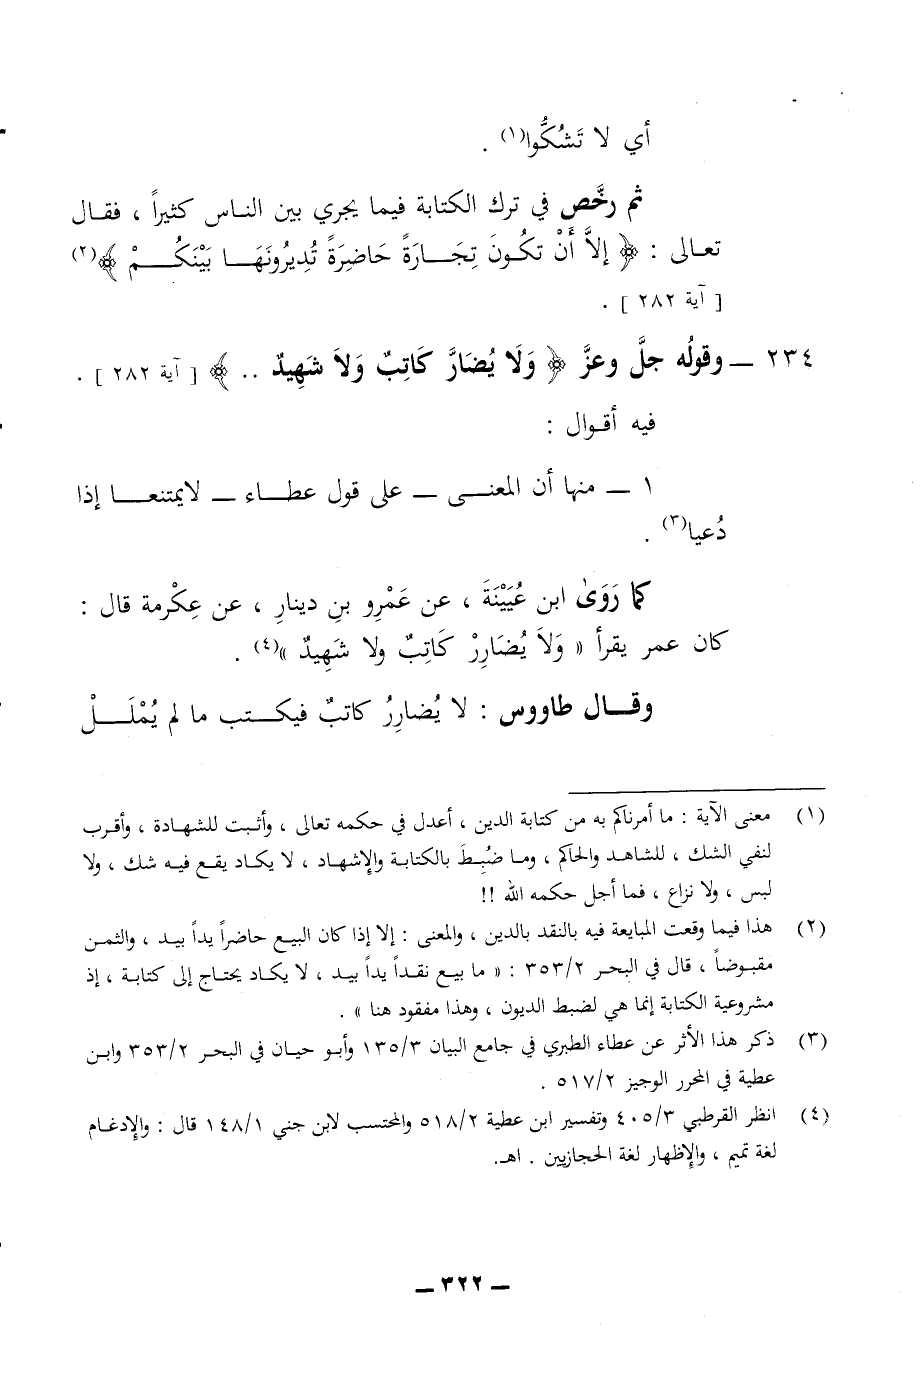 أي لا تَشُكُّوا(١) .
ثم رخَّص في ترك الكتابة فيما يجري بين الناس كثيراً ، فقال
تعالى : ﴿ إلاَّ أَنْ تكُونَ تِجَارَةً حَاضِرَةً تُدِيرُونَهَا بَيْنَكُمْ ﴾(٢)
[ آية ٢٨٢ ] .
٢٣٤ ــ وقولُه جلَّ وعزَّ ﴿ وَلَا يُضَارَّ كَاتِبٌ وَلاَ شَهِيدٌ .. ﴾ [ آية ٢٨٢ ] .
فيه أقوال :
١ ــ منها أن المعنى ــ على قول عطاء ــ لايمتنعا إذا
دُعيا(٣) .
كما رَوَىٰ ابن عُيَيْنَةَ ، عن عَمْرِو بنِ دينارِ ، عن عِكْرمة قال :
كان عمر يقرأ « وَلاَ يُضَارِرْ كَاتِبٌ ولا شَهِيدٌ »(٤) .
وقال طاووس : لا يُضارِرُ كاتبٌ فيكتب ما لم يُمْلَلْ
(١) معنى الآية : ما أمرناكم به من كتابة الدين ، أعدل في حكمه تعالى ، وأثبت للشهادة ، وأقرب
لنفي الشك ، للشاهد والحاكم ، وما ضُبِطَ بالكتابة والإشهاد ، لا يكاد يقع فيه شك ، ولا
لبس ، ولا نزاع ، فما أجل حكمه الله !!
(٢) هذا فيما وقعت المبايعة فيه بالنقد بالدين ، والمعنى : إلا إذا كان البيع حاضراً يداً بيد ، والثمن
مقبوضاً ، قال في البحر ٣٥٣/٢ : « ما بيع نقداً يداً بيد ، لا يكاد يحتاج إلى كتابة ، إذ
مشروعية الكتابة إنما هي لضبط الديون ، وهذا مفقود هنا » .
(٣) ذكر هذا الأثر عن عطاء الطبري في جامع البيان ١٣٥/٣ وأبو حيان في البحر ٣٥٣/٢ وابن
عطية في المحرر الوجيز ٥١٧/٢ .
(٤) انظر القرطبي ٤٠٥/٣ وتفسير ابن عطية ٥١٨/٢ والمحتسب لابن جني ١٤٨/١ قال : والإدغام
لغة تميم ، والإظهار لغة الحجازيين . اهـ.
ــ ٣٢٢ ــ